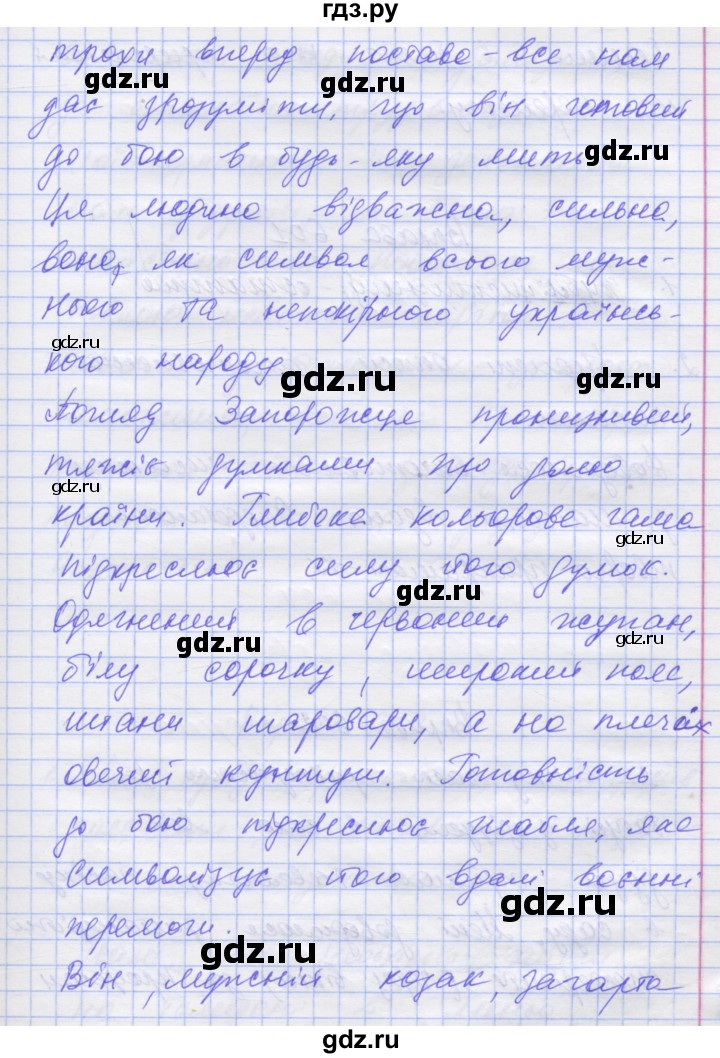 гдз.ру
трохи вперед постава - все нам
gdz.ru gdz.ru
дає зрозуміти, що він готовий
до бою в будь-яку мить.
gdz.ru
Ця людина відважна, сильна,
вона, як символ всього муж-
нього та непокірного українсь-
gdz.ru
кого народу.
gdz.ru gdz.ru
Погляд Запорожця пронизливий,
тяжіє думками про долю
gdz.ru
країни. Глибока кольорова гама
gdz.ru
підкреслює силу його думок.
gdz.ru
Одягнений в червоний жупан,
gdz.ru
білу сорочку, широкий пояс,
штани шаровари, а на плечах
овечий кунтуш. Готовність
до бою підкреслює шабля, яка
символізує його вдалі воєнні
gdz.ru
перемоги.
gdz.ru
Він, мужній козак, загарто
gdz.ru